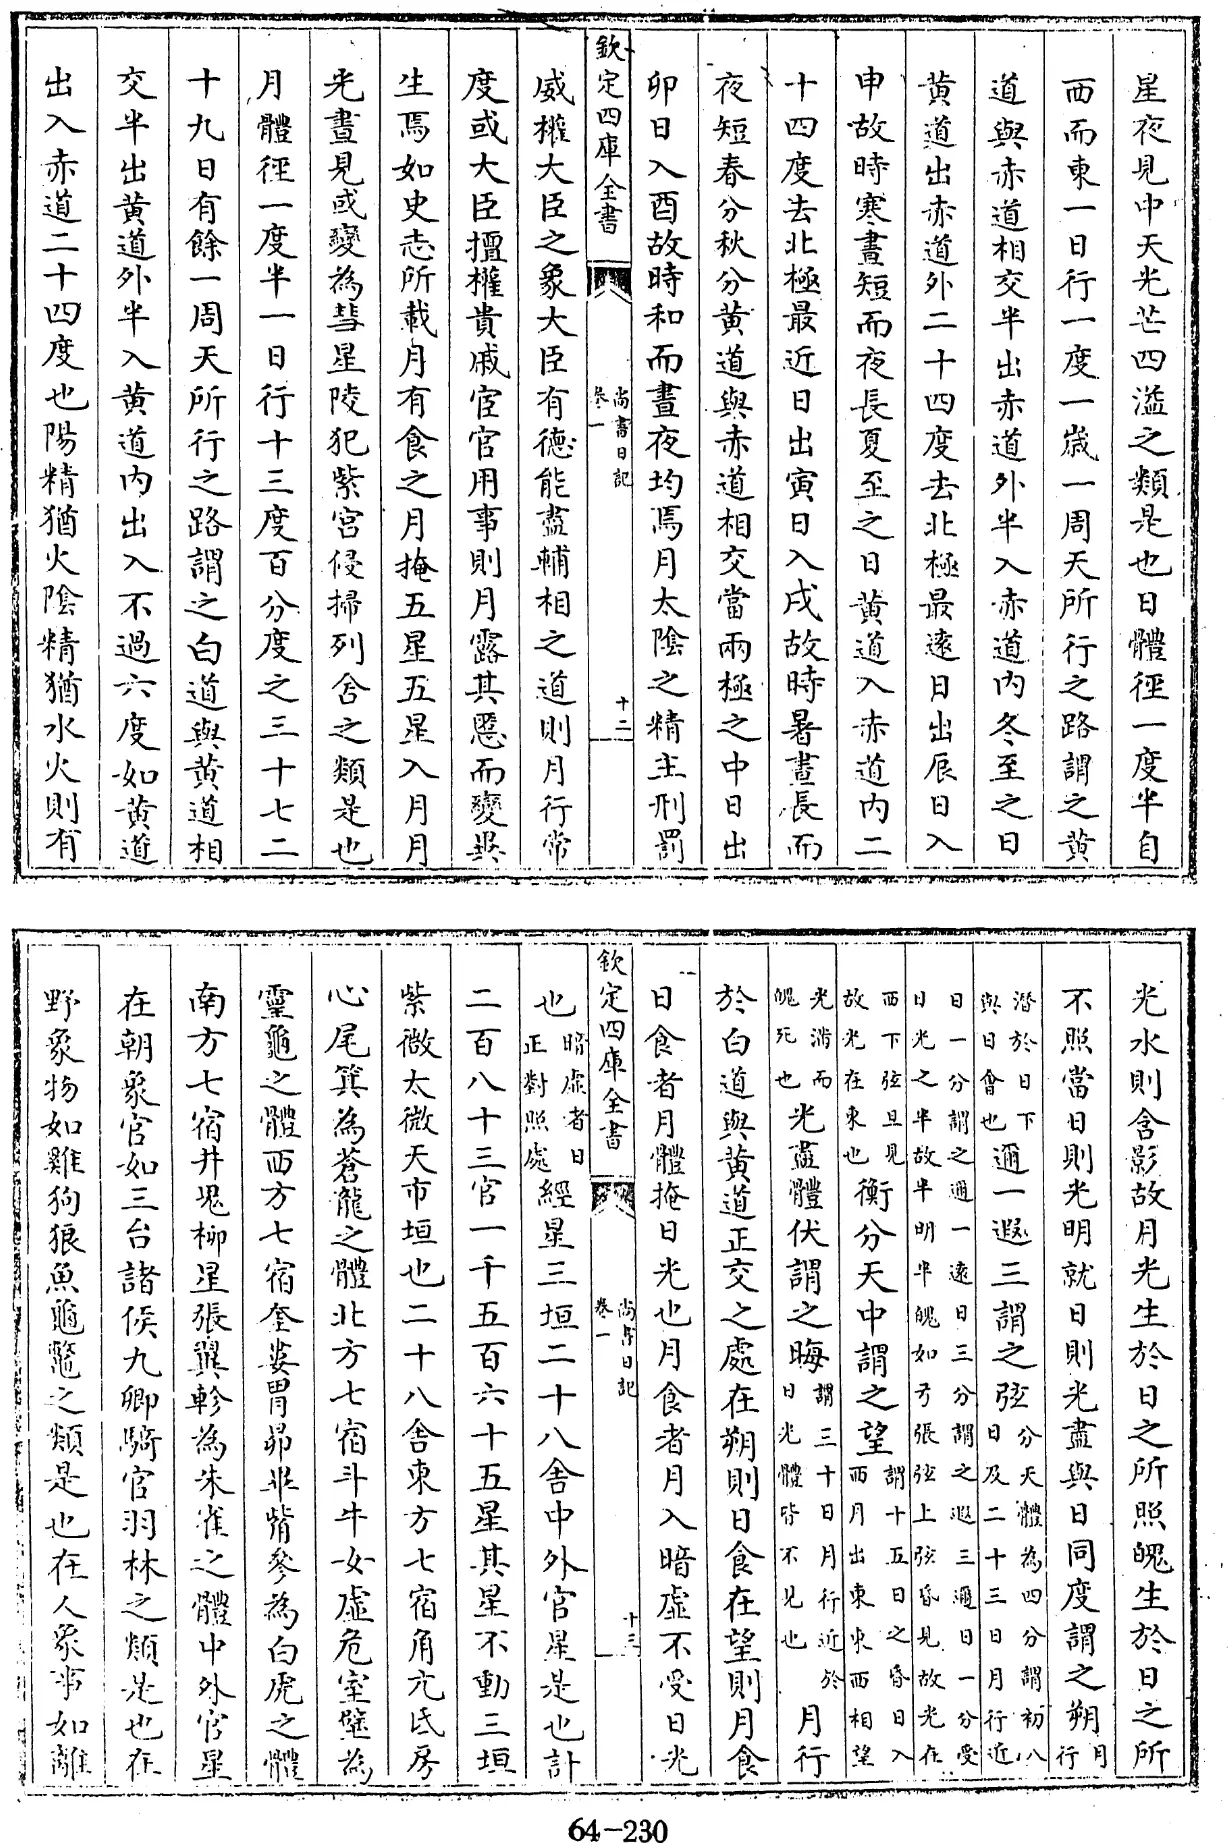 星夜見中天光芒四溢之類是也日體徑一度半自
西而東一日行一度一歲一周天所行之路謂之黄
道與赤道相交半出赤道外半入赤道内冬至之日
黄道出赤道外二十四度去北極最遠日出辰日入
申故時寒晝短而夜長夏至之日黄道入赤道内二
十四度去北極最近日出寅日入戌故時暑晝長而
夜短春分秋分黄道與赤道相交當兩極之中日出
卯日入酉故時和而晝夜均焉月太陰之精主刑罰
欽定四庫全書
尚書日記
卷一
十二
威權大臣之象大臣有德能盡輔相之道則月行常
度或大臣擅權貴戚宦官用事則月露其慝而變異
生焉如史志所載月有食之月掩五星五星入月月
光晝見或變為彗星陵犯紫宫侵掃列舍之類是也
月體徑一度半一日行十三度百分度之三十七二
十九日有餘一周天所行之路謂之白道與黄道相
交半出黄道外半入黄道内出入不過六度如黄道
出入赤道二十四度也陽精猶火陰精猶水火則有
光水則含影故月光生於日之所照魄生於日之所
不照當日則光明就日則光盡與日同度謂之朔月行
潛於日下與日會也邇一遐三謂之弦分天體為四分謂初八日及二十三日月行近
日一分謂之邇一遠日三分謂之遐三邇日一分受日光之半故半明半魄如弓張弦上弦昏見故光在
西下弦旦見故光在東也衡分天中謂之望謂十五日之昏日入西月出東東西相望
光滿而魄死也光盡體伏謂之晦謂三十日月行近於日光體皆不見也月行
於白道與黄道正交之處在朔則日食在望則月食
日食者月體掩日光也月食者月入暗虚不受日光
欽定四庫全書
尚書日記
卷一
十三
也暗虚者日正對照處經星三垣二十八舍中外官星是也計
二百八十三官一千五百六十五星其星不動三垣
紫微太微天市垣也二十八舍東方七宿角亢氐房
心尾箕為蒼龍之體北方七宿斗牛女虚危室壁為
靈龜之體西方七宿奎婁胃昴畢觜參為白虎之體
南方七宿井鬼柳星張翼軫為朱雀之體中外官星
在朝象官如三台諸侯九卿騎官羽林之類是也在
野象物如雞狗狼魚龜鼈之類是也在人象事如離
64-230